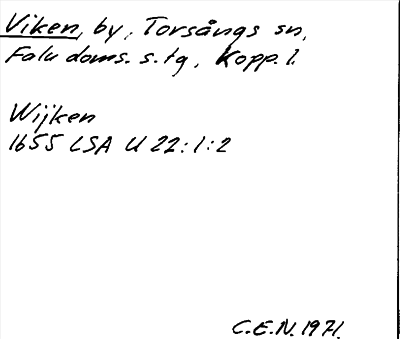 Viken, by, Torsångs sn,
Falu doms. s. tg, Kopp. l.
Wijken
1655 LSA U 22:1:2
C.E.N. 1971.